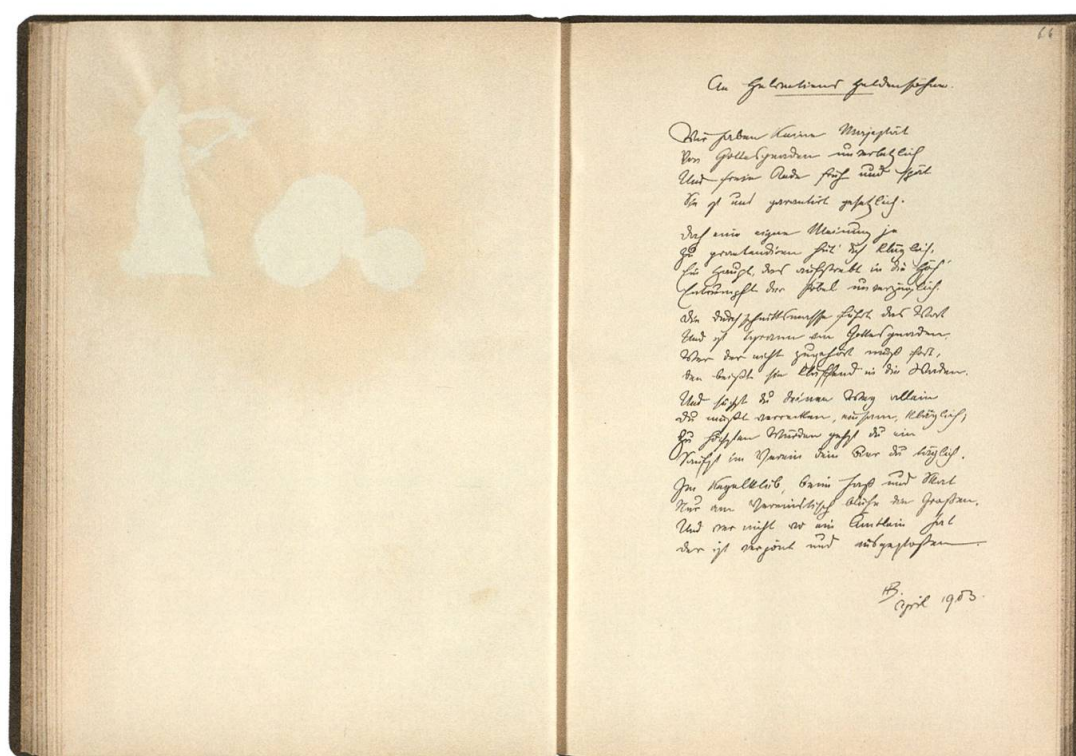 66
An Helvetiens Heldensöhne.
Wir haben keine Majestät
Von Gottesgnaden unverletzlich
Und freie Rede früh und spät
Sie ist uns garantirt gesetzlich.
Doch eine eigne Meinung je
Zu praetendiren hüt' dich klüglich.
Ein Haupt, das aufstrebt in die Höh'
Entrumpft der Pöbel unverzüglich.
Die Durchschnittsmasse führt das Wort
Und ist Tyrann von Gottesgnaden.
Wer der nicht zugehört muß fort,
den beißt sie kläffend in die Waden.
Und suchst du deinen Weg allein
Du mußt verrecken, einsam, kläglich,
Zu höchsten Würden gehst du ein
Säufst im Verein dein Bier du täglich.
Im Kegelklub, beim Jass und Skat
Nur am Vereinstisch blühn die Grossen.
Und wer nicht wo ein Ämtlein hat
der ist verpönt und ausgestossen.
HB.
April 1903.